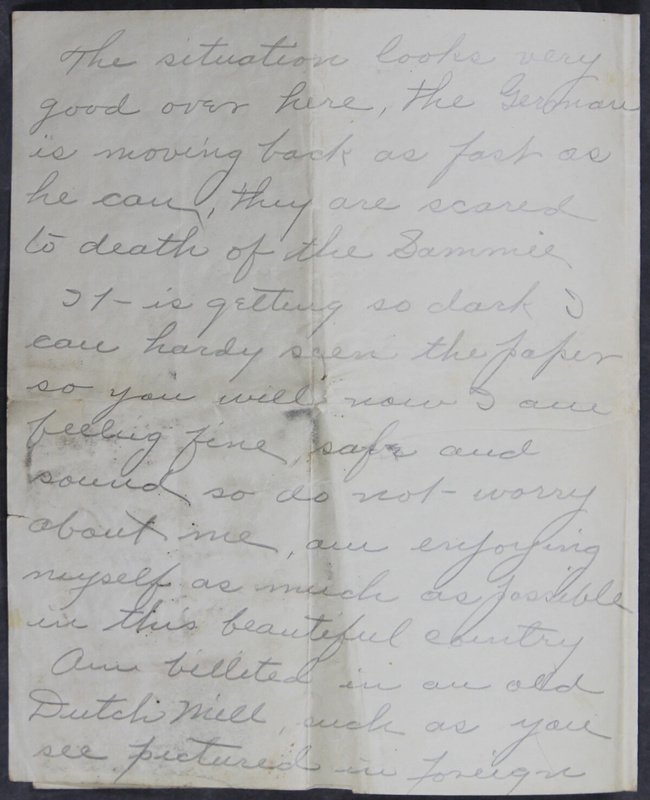 The situation looks very
good over here, the German
is moving back as fast as
he can, they are scared
to death of the Sammie
It is getting so dark I
can hardy seen the paper
so you will now I am
feeling fine, safe and
sound so do not worry
about me, am enjoying
myself as much as possible
in this beautiful country
Am billited in an old
Dutch Mill, such as you
see pictured in foreign